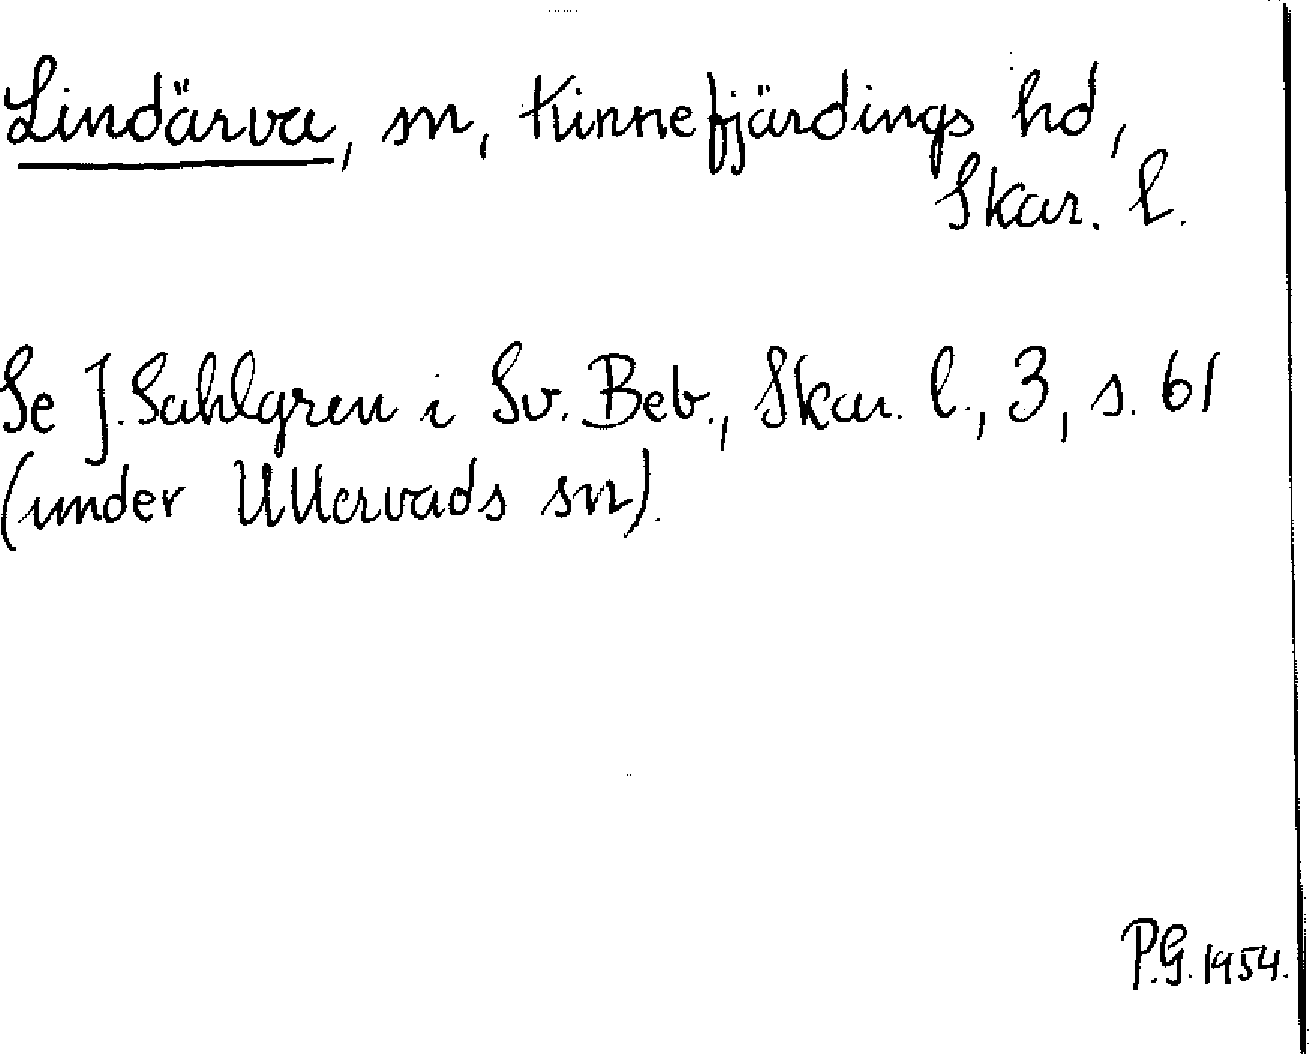 Lindärva, sn, Kinnefjärdings hd,
Skar. l.
Se J. Sahlgren i Sv. Beb., Skar. l., 3, s. 61
(under Ullervads sn).
P.G. 1954.